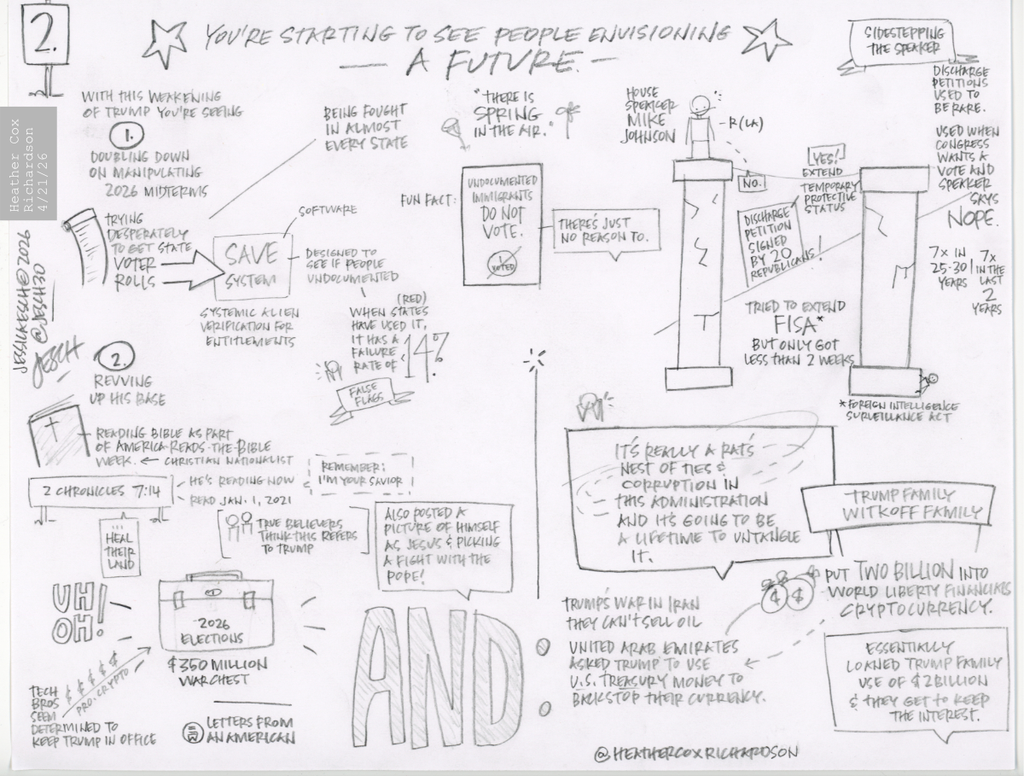 2.
YOU'RE STARTING TO SEE PEOPLE ENVISIONING
— A FUTURE. —
Heather Cox
Richardson
4/21/26
JESSICAESCH©2026
@JESCH30
JESCH
WITH THIS WEAKENING
OF TRUMP YOU'RE SEEING
1.
DOUBLING DOWN
ON MANIPULATING
2026 MIDTERMS
BEING FOUGHT
IN ALMOST
EVERY STATE
TRYING
DESPERATELY
TO GET STATE
VOTER
ROLLS
SAVE
SYSTEM
SOFTWARE
SYSTEMIC ALIEN
VERIFICATION FOR
ENTITLEMENTS
DESIGNED TO
SEE IF PEOPLE
UNDOCUMENTED
(RED)
WHEN STATES
HAVE USED IT,
IT HAS A
FAILURE
RATE OF
14%
FALSE
FLAGS
"THERE IS
SPRING
IN THE AIR."
FUN FACT:
UNDOCUMENTED
IMMIGRANTS
DO NOT
VOTE.
I
VOTED
THERE'S JUST
NO REASON TO.
HOUSE
SPEAKER
MIKE
JOHNSON
-R(LA)
SIDESTEPPING
THE SPEAKER
DISCHARGE
PETITIONS
USED TO
BE RARE.
USED WHEN
CONGRESS
WANTS A
VOTE AND
SPEAKER
SAYS
NOPE.
7X IN
25-30
YEARS
7X
IN THE
LAST
2
YEARS
NO.
YES!
EXTEND
TEMPORARY
PROTECTIVE
STATUS
DISCHARGE
PETITION
SIGNED
BY 20
REPUBLICANS!
TRIED TO EXTEND
FISA*
BUT ONLY GOT
LESS THAN 2 WEEKS
*FOREIGN INTELLIGENCE
SURVEILLANCE ACT
2.
REVVING
UP HIS BASE
READING BIBLE AS PART
OF AMERICA-READS-THE-BIBLE
WEEK. ← CHRISTIAN NATIONALIST
2 CHRONICLES 7:14
HE'S READING NOW
READ JAN. 1, 2021
REMEMBER:
I'M YOUR SAVIOR
HEAL
THEIR
LAND
TRUE BELIEVERS
THINK THIS REFERS
TO TRUMP
ALSO POSTED A
PICTURE OF HIMSELF
AS JESUS & PICKING
A FIGHT WITH THE
POPE!
UH
OH!
2026
ELECTIONS
$350 MILLION
WARCHEST
$ $ $ $ $
PRO. CRYPTO
TECH
BROS
SEEM
DETERMINED TO
KEEP TRUMP IN OFFICE
LETTERS FROM
AN AMERICAN
AND
IT'S REALLY A RAT'S
NEST OF TIES &
CORRUPTION IN
THIS ADMINISTRATION
AND IT'S GOING TO BE
A LIFETIME TO UNTANGLE
IT.
TRUMP FAMILY
WITKOFF FAMILY
TRUMP'S WAR IN IRAN
THEY CAN'T SELL OIL
UNITED ARAB EMIRATES
ASKED TRUMP TO USE
U.S. TREASURY MONEY TO
BACKSTOP THEIR CURRENCY.
$ $
PUT TWO BILLION INTO
WORLD LIBERTY FINANCIALS
CRYPTOCURRENCY.
ESSENTIALLY
LOANED TRUMP FAMILY
USE OF $2 BILLION
& THEY GET TO KEEP
THE INTEREST.
@HEATHERCOXRICHARDSON